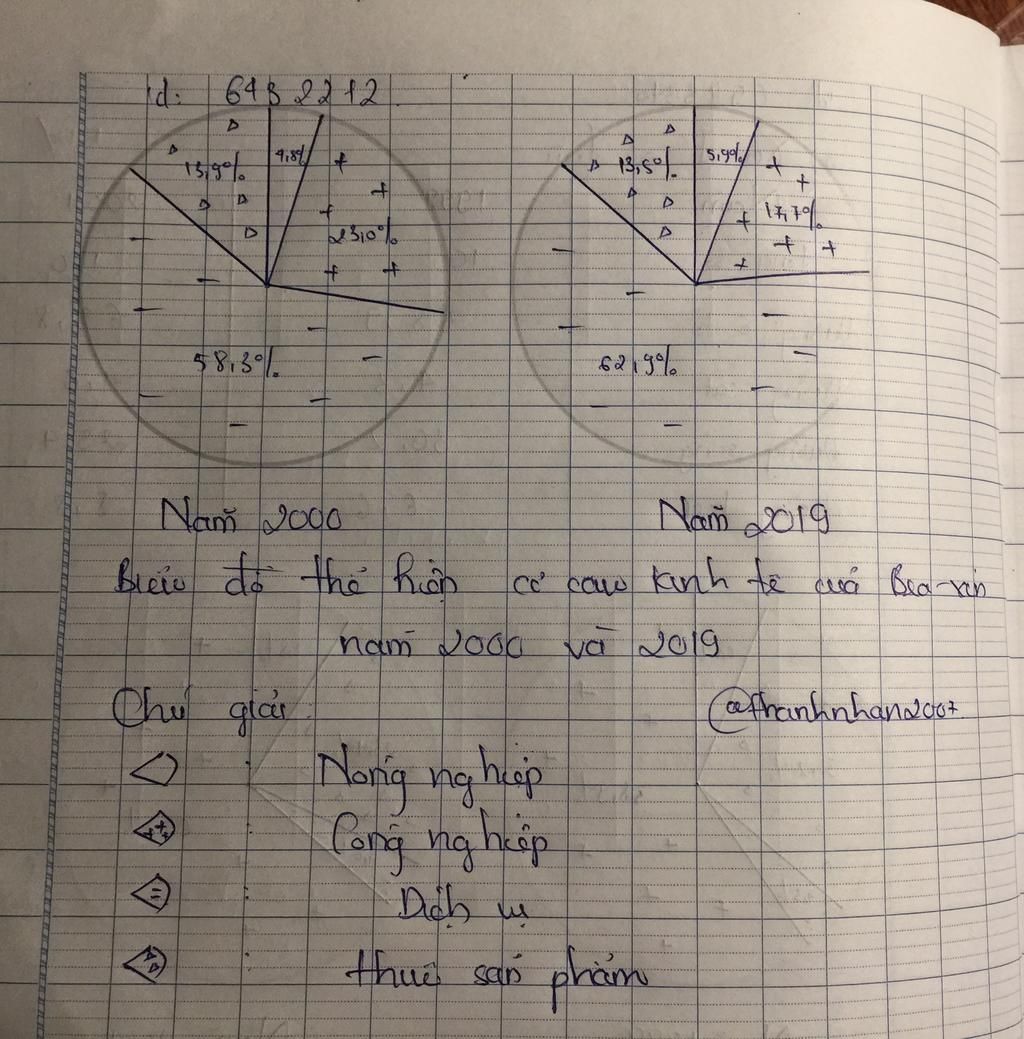 id: 6432212
13,9%
4,8%
23,0%
58,3%
13,5%
5,9%
17,7%
62,9%
Năm 2000
Năm 2019
Biểu đồ thể hiện cơ cấu kinh tế của Bra-xin
năm 2000 và 2019
Chú giải:
@thanhnhan2007
: Nông nghiệp
: Công nghiệp
: Dịch vụ
: thuế sản phẩm